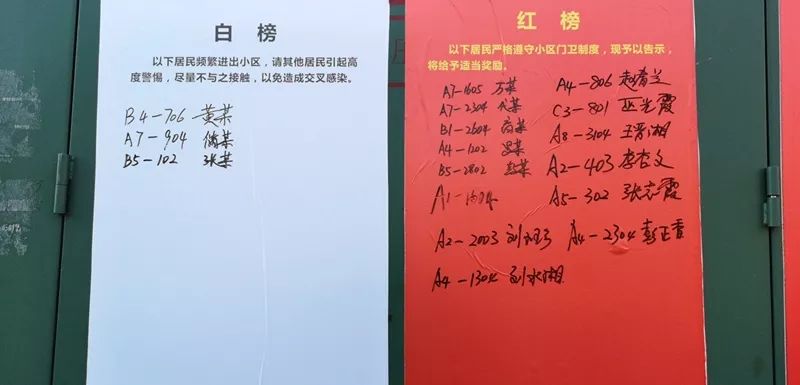 白榜
以下居民频繁进出小区，请其他居民引起高
度警惕，尽量不与之接触，以免造成交叉感染。
B4-706 黄某
A7-904 储某
B5-102 张某
红榜
以下居民严格遵守小区门卫制度，现予以告示，
将给予适当奖励。
A7-1605 万某
A7-2304 代某
B1-2604 高某
A4-1202 某
B5-2802 彭某
A1-
A2-2003 刘
A4-1304 刘水湘
A4-806 赵春兰
C3-801 巫光霞
A8-3104 王香湘
A2-403 李杏文
A5-302 张志霞
A4-2304 彭正香